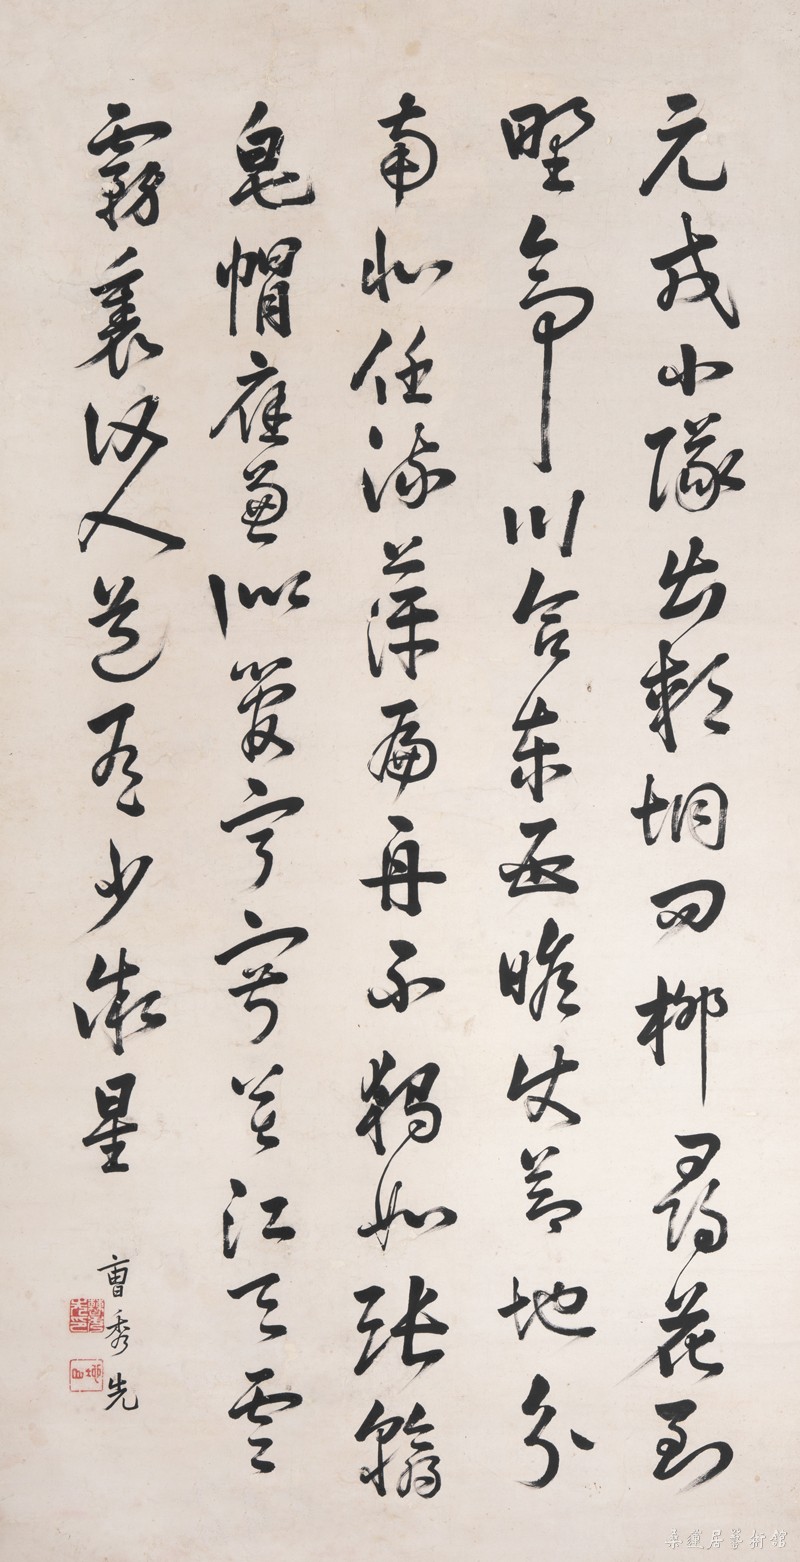 元戎小隊出郊坰問柳尋花到
野亭川合東西瞻使節地分
南北任流萍扁舟不獨如張翰
皂帽應兼似管寧寂莫江天雲
霧裏何人道有少微星
曹秀先
桑蓮居藝術館